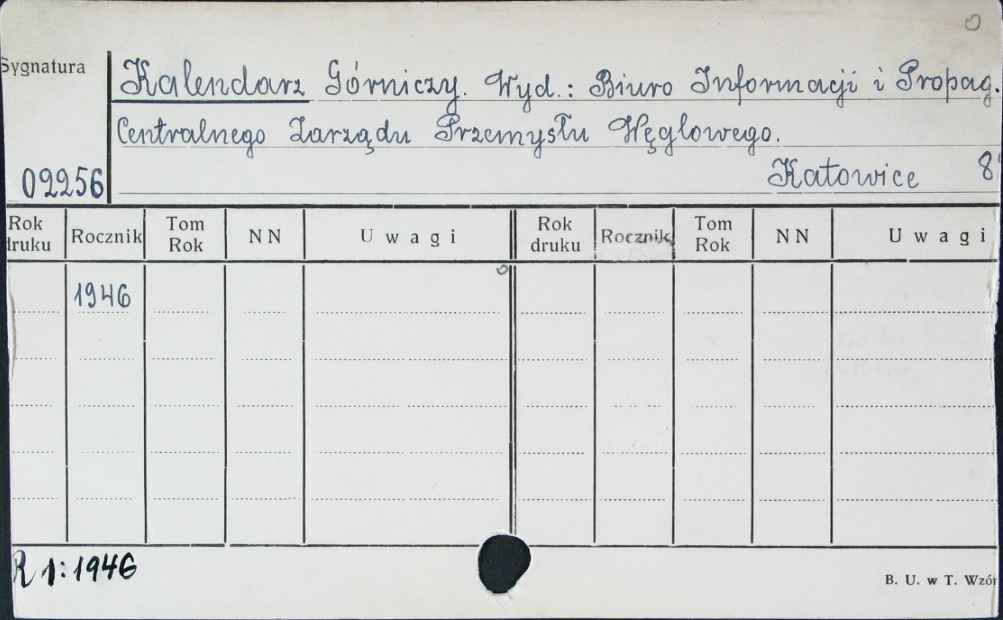 Sygnatura
Kalendarz Górniczy. Wyd.: Biuro Informacji i Propag.
Centralnego Zarządu Przemysłu Węglowego.
02256
Katowice 8°
Rok druku Rocznik Tom Rok NN Uwagi Rok druku Rocznik Tom Rok NN Uwagi
1946
R 1:1946
B. U. w T. Wzór